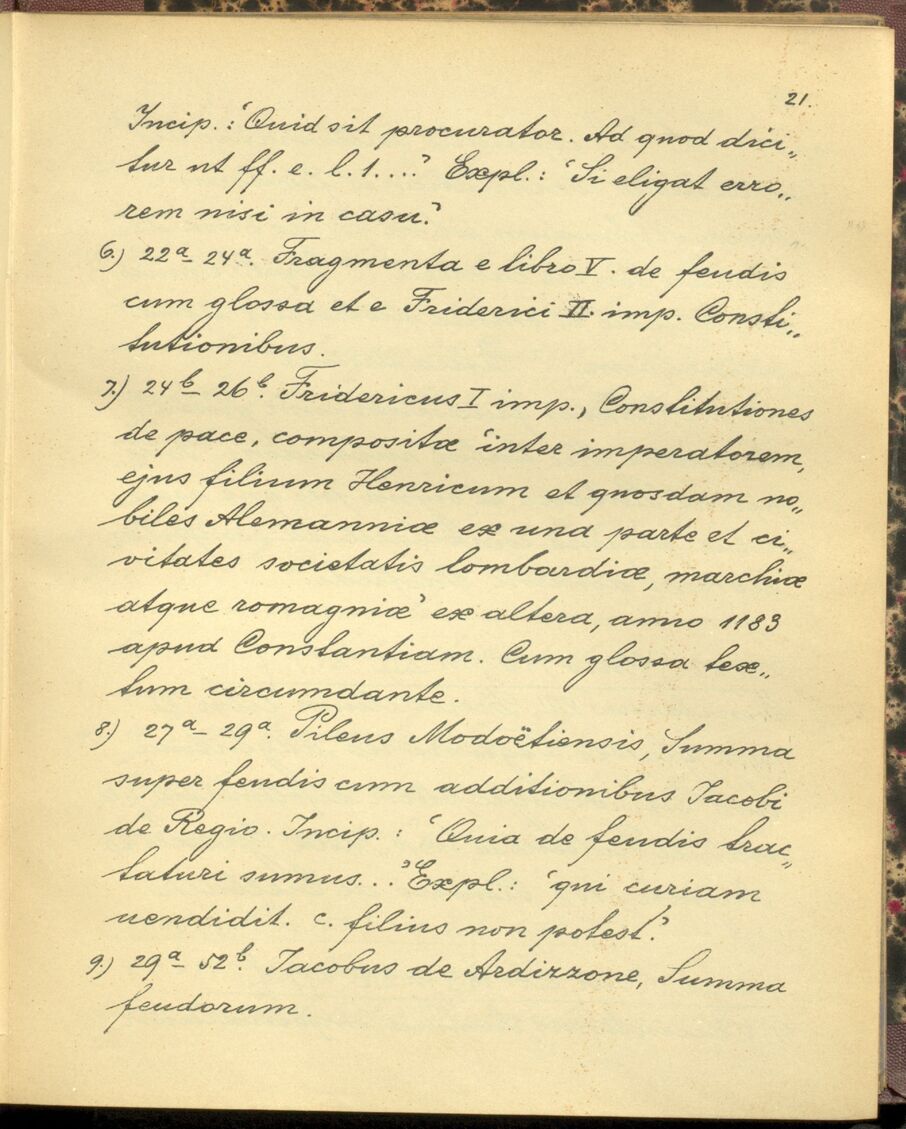 21.
Incip.: 'Quid sit procurator. Ad quod dici„
tur ut ff. e. l. 1....' Expl.: 'Si eligat erro„
rem nisi in casu.'
6.) 22a– 24a. Fragmenta e libro V. de feudis
cum glossa et e Friderici II. imp. Consti„
tutionibus.
7.) 24b– 26b. Fridericus I imp., Constitutiones
de pace, compositæ 'inter imperatorem,
ejus filium Henricum et quosdam no„
biles Alemanniæ ex una parte et ci„
vitates societatis lombardiæ, marchiæ
atque romagniæ' ex altera, anno 1183
apud Constantiam. Cum glossa tex„
tum circumdante.
8.) 27a– 29a. Pileus Modoëtiensis, Summa
super feudis cum additionibus Iacobi
de Regio. Incip.: 'Quia de feudis trac„
taturi sumus...' Expl.: 'qui curiam
uendidit. c. filius non potest.'
9.) 29a– 52b. Iacobus de Ardizzone, Summa
feudorum.